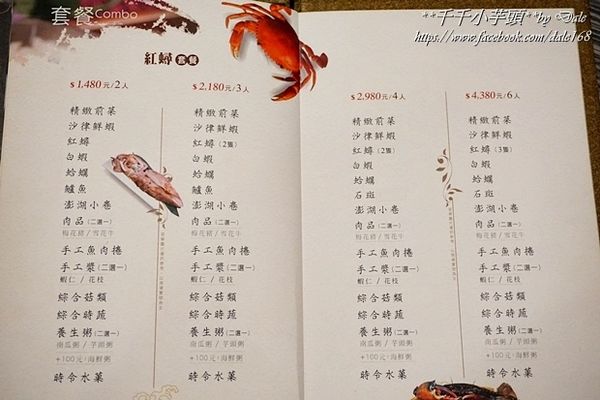 套餐Combo
**千千小芋頭**by Dale
https://www.facebook.com/dale168
紅蟳 套餐
$1,480元/2人
精緻前菜
沙律鮮蝦
紅蟳
白蝦
蛤蠣
鱸魚
澎湖小卷
肉品(二選一)
梅花豬/雪花牛
手工魚肉捲
手工漿(二選一)
蝦仁/花枝
綜合菇類
綜合時蔬
養生粥(二選一)
南瓜粥/芋頭粥
+100元,海鮮粥
時令水菓
$2,180元/3人
精緻前菜
沙律鮮蝦
紅蟳(2隻)
白蝦
蛤蠣
鱸魚
澎湖小卷
肉品(二選一)
梅花豬/雪花牛
手工魚肉捲
手工漿(二選一)
蝦仁/花枝
綜合菇類
綜合時蔬
養生粥(二選一)
南瓜粥/芋頭粥
+100元,海鮮粥
時令水菓
$2,980元/4人
精緻前菜
沙律鮮蝦
紅蟳(2隻)
白蝦
蛤蠣
石斑
澎湖小卷
肉品(二選一)
梅花豬/雪花牛
手工魚肉捲
手工漿(二選一)
蝦仁/花枝
綜合菇類
綜合時蔬
養生粥(二選一)
南瓜粥/芋頭粥
+100元,海鮮粥
時令水菓
$4,380元/6人
精緻前菜
沙律鮮蝦
紅蟳(3隻)
白蝦
蛤蠣
石斑
澎湖小卷
肉品(二選一)
梅花豬/雪花牛
手工魚肉捲
手工漿(二選一)
蝦仁/花枝
綜合菇類
綜合時蔬
養生粥(二選一)
南瓜粥/芋頭粥
+100元,海鮮粥
時令水菓